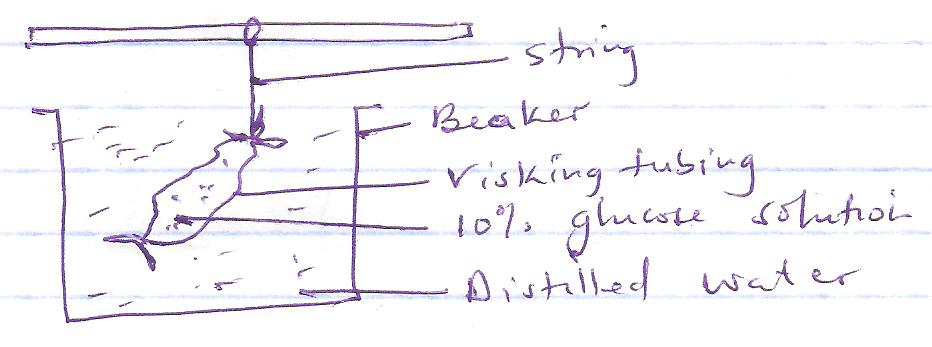 string
Beaker
Visking tubing
10% glucose solution
Distilled water